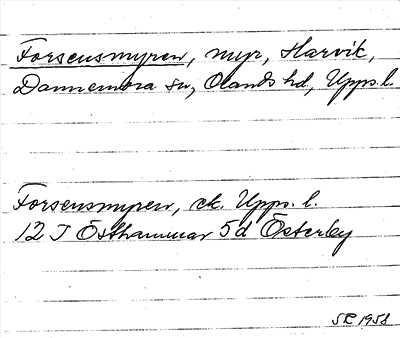 Forsensmyren, myr, Harvik,
Dannemora sn, Olands hd, Upps.l.
Forsensmyren, ek. Upps. l.
12 I Östhammar 5d Österby
SR 1958